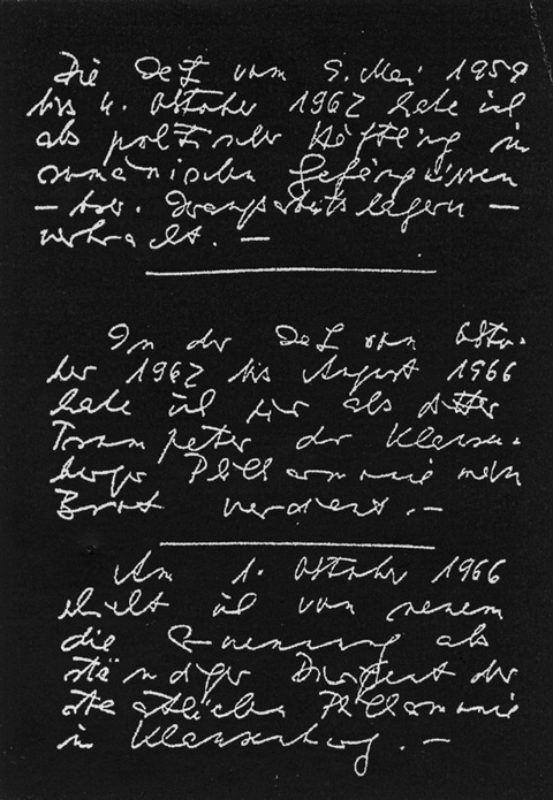 Die Zeit vom 5. Mai 1959
bis 4. Oktober 1962 habe ich
als politischer Häftling in
rumänischen Gefängnissen
– bzw. Zwangsarbeitslagern –
verbracht. –
In der Zeit vom Okto-
ber 1962 bis August 1966
habe ich mir als dritter
Trompeter der Klausen-
burger Philharmonie mein
Brot verdient. –
Am 1. Oktober 1966
erhielt ich von neuem
die Ernennung als
ständiger Dirigent der
staatlichen Philharmonie
in Klausenburg. –